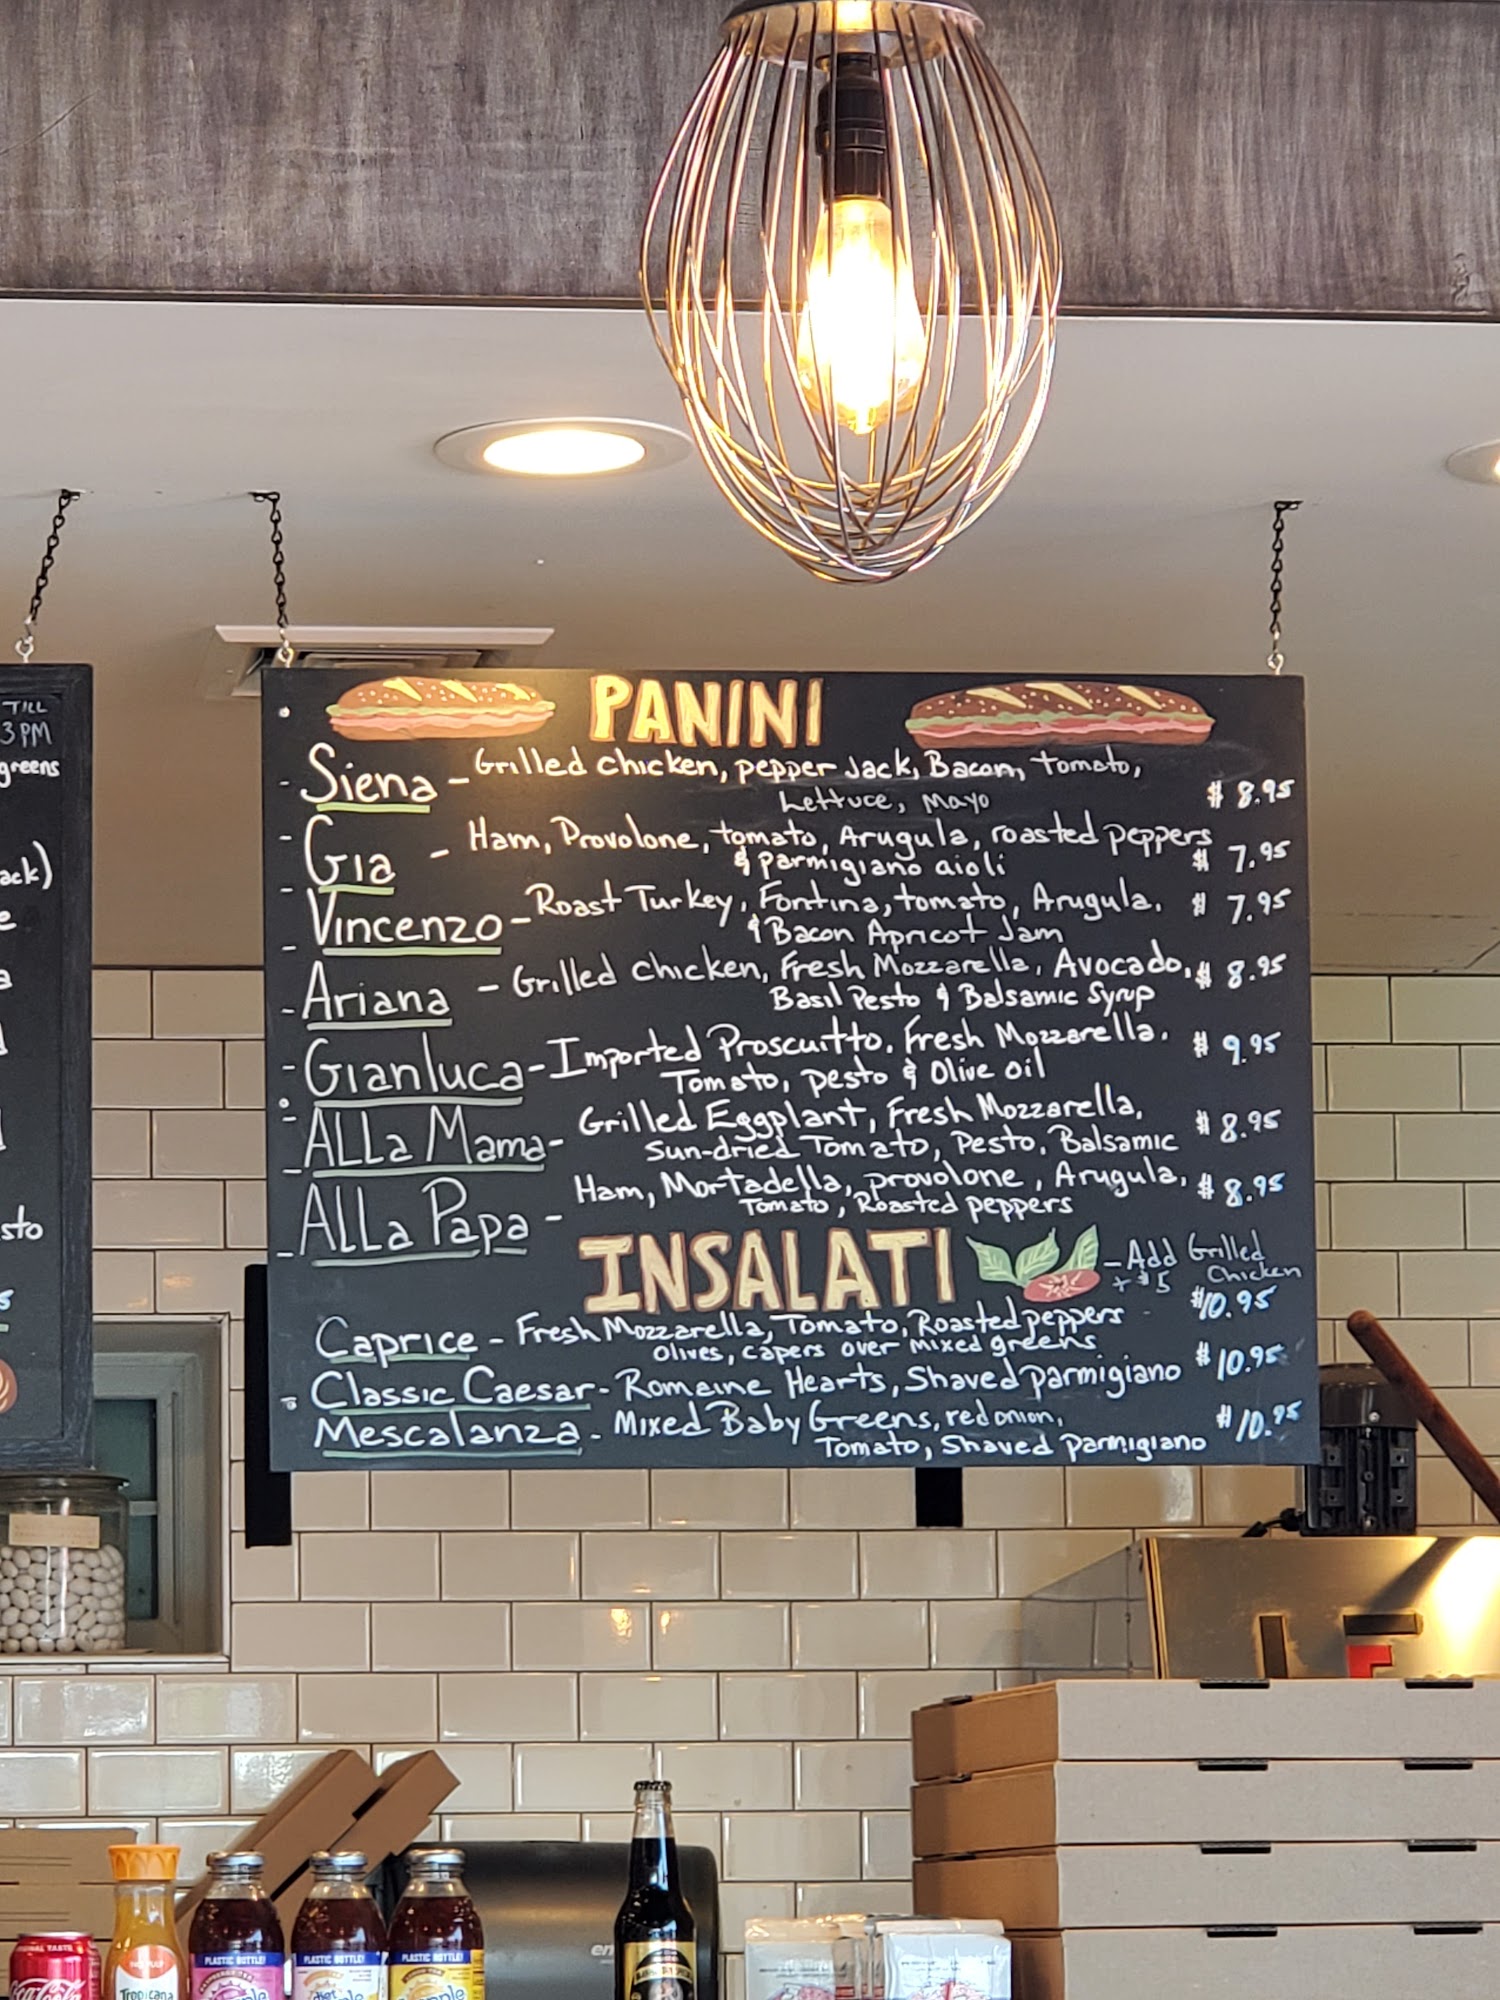 TILL
3PM
greens
ack)
sto
PANINI
Siena - Grilled chicken, pepper Jack, Bacon, tomato,
Lettuce, Mayo $ 8.95
Gia - Ham, Provolone, tomato, Arugula, roasted peppers
& parmigiano aioli $ 7.95
Vincenzo - Roast Turkey, Fontina, tomato, Arugula, $ 7.95
& Bacon Apricot Jam
Ariana - Grilled chicken, Fresh Mozzarella, Avocado, $ 8.95
Basil Pesto & Balsamic Syrup
Gianluca - Imported Proscuitto, Fresh Mozzarella, $ 9.95
Tomato, pesto & Olive oil
ALLa Mama - Grilled Eggplant, Fresh Mozzarella, $ 8.95
Sun-dried Tomato, Pesto, Balsamic
ALLa Papa - Ham, Mortadella, provolone, Arugula, $ 8.95
Tomato, Roasted peppers
INSALATI - Add Grilled
+ $5 Chicken
Caprice - Fresh Mozzarella, Tomato, Roasted peppers $10.95
Olives, capers over mixed greens
Classic Caesar - Romaine Hearts, Shaved parmigiano $10.95
Mescalanza - Mixed Baby Greens, red onion, $10.95
Tomato, Shaved parmigiano
Coca-Cola
Tropicana
PLASTIC BOTTLE!
PLASTIC BOTTLE!
PLASTIC BOTTLE!